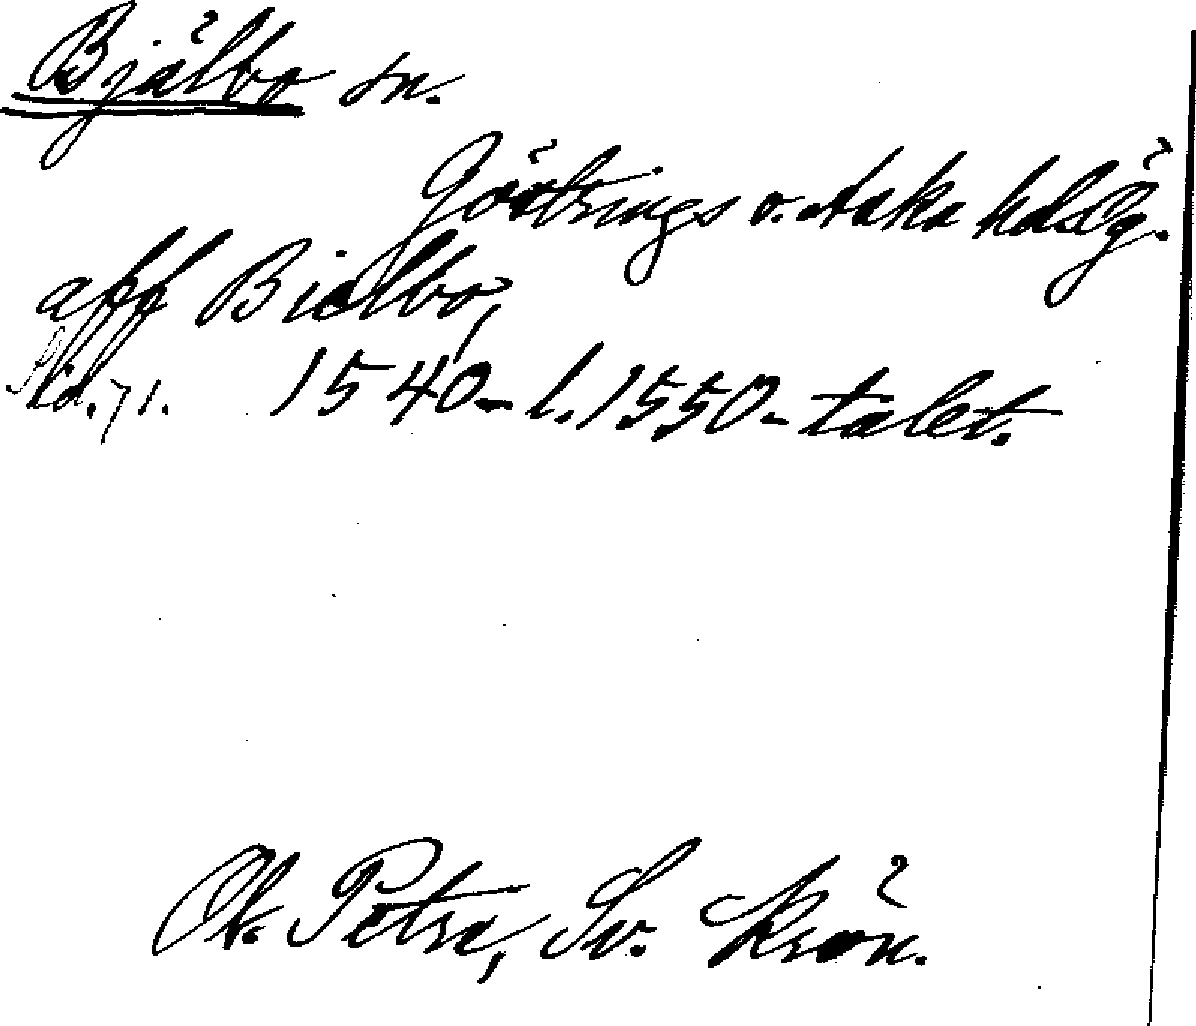 Bjälbo sn.
Göstrings o. Aska hds Ög.
aff Bielbo,
Sid. 71. 1540- l. 1550-talet.
Ol. Petre, Sv. Krön.